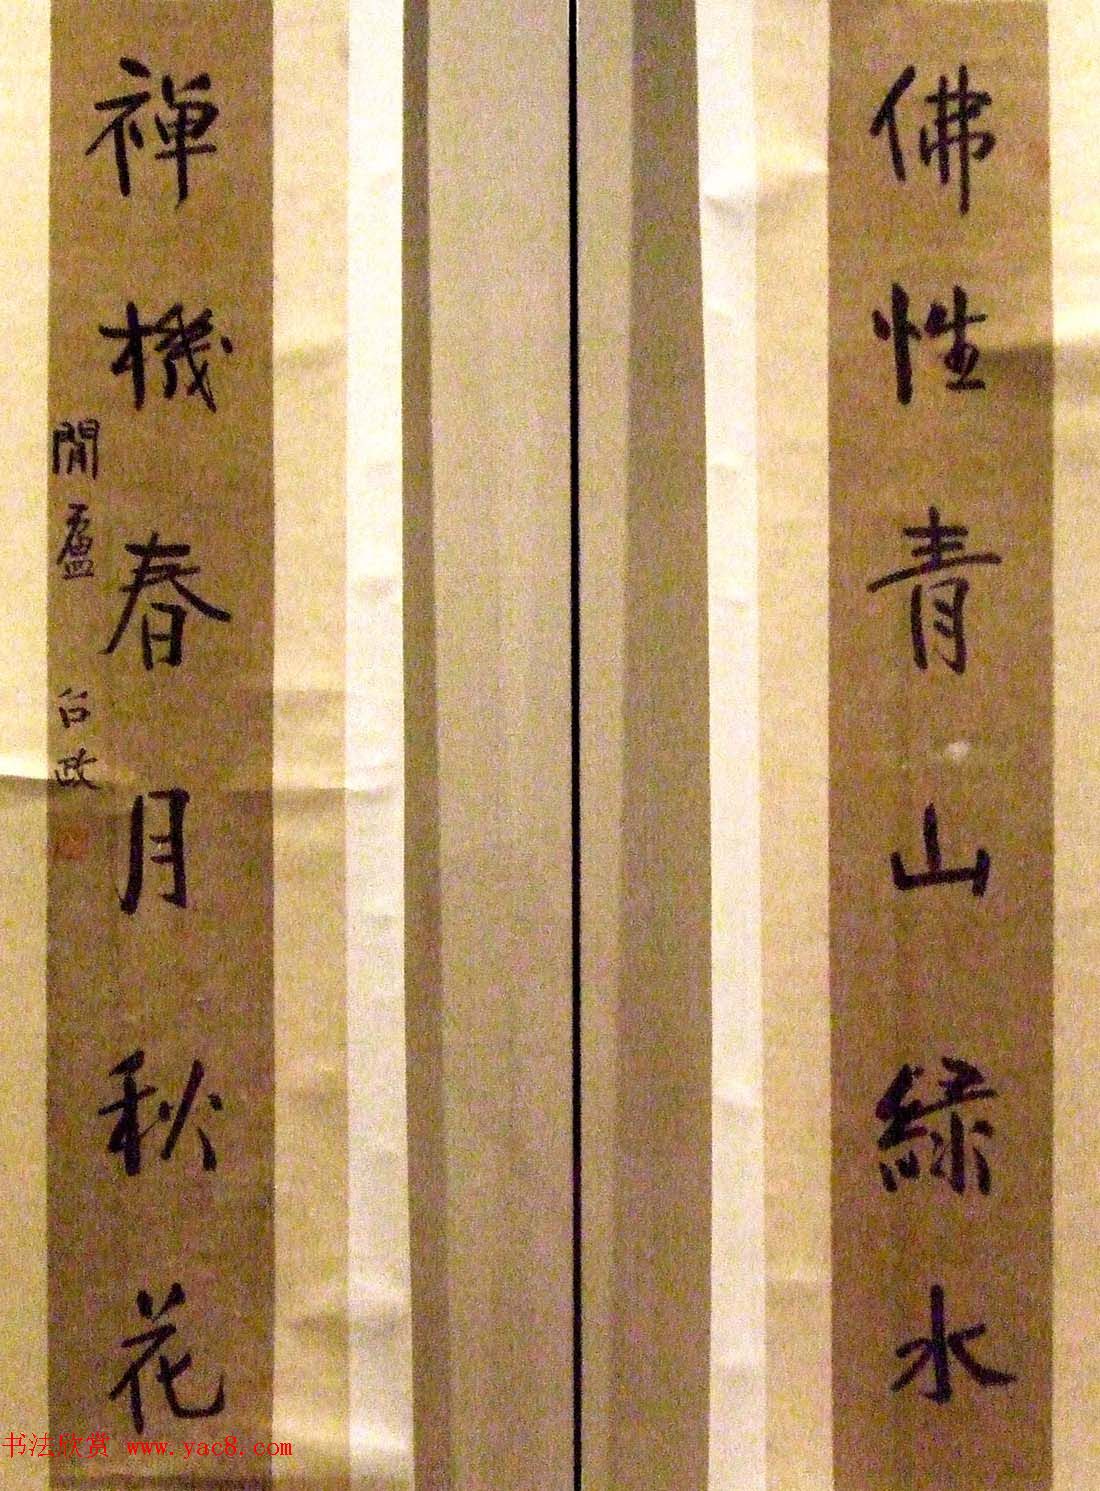 佛性青山緑水
禅機春月秋花
閒廬 台政
书法欣赏 www.yac8.com